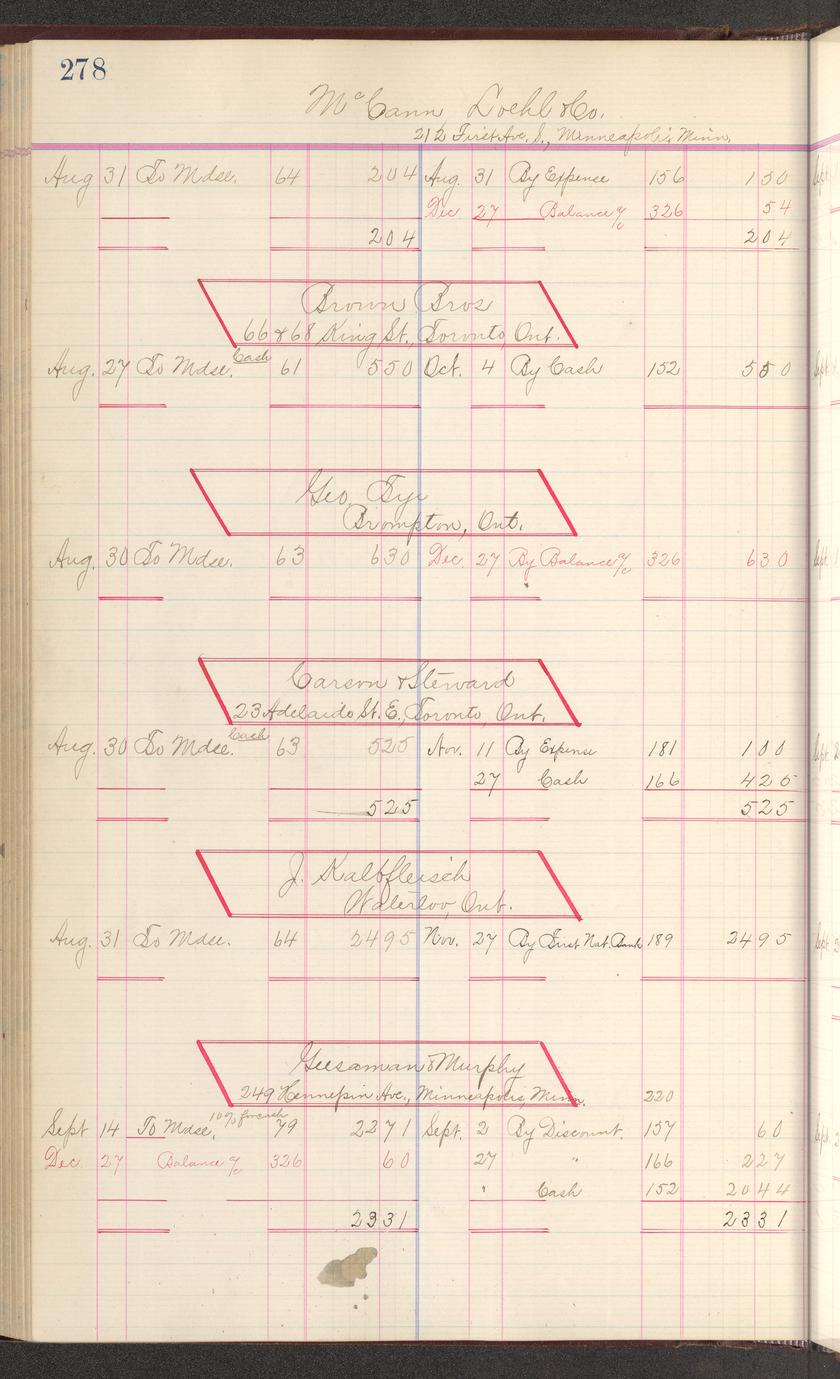 278
McCann, Loehl & Co.
212 First Ave. S., Minneapolis, Minn.
Aug 31 To Mdse. 64 204 Aug. 31 By Expense 156 150
Dec 27 Balance a/c 326 54
204 204
Brown Bros
66 & 68 King St., Toronto, Ont.
Cash
Aug. 27 To Mdse. 61 550 Oct. 4 By Cash 152 550
Geo. Tye
Brompton, Ont.
Aug. 30 To Mdse. 63 630 Dec. 27 By Balance a/c 326 630
Carson & Steward
23 Adelaide St. E., Toronto, Ont.
Cash
Aug. 30 To Mdse. 63 525 Nov. 11 By Expense 181 100
27 Cash 166 425
525 525
J. Kalbfleisch
Waterloo, Ont.
Aug. 31 To Mdse. 64 2495 Nov. 27 By First Nat. Bank 189 2495
Geesaman & Murphy
249 Hennepin Ave., Minneapolis, Minn. 220
10% for cash
Sept 14 To Mdse, 79 2271 Sept. 2 By Discount. 157 60
Dec 27 Balance a/c 326 60 27 " 166 227
" Cash 152 2044
2331 2331